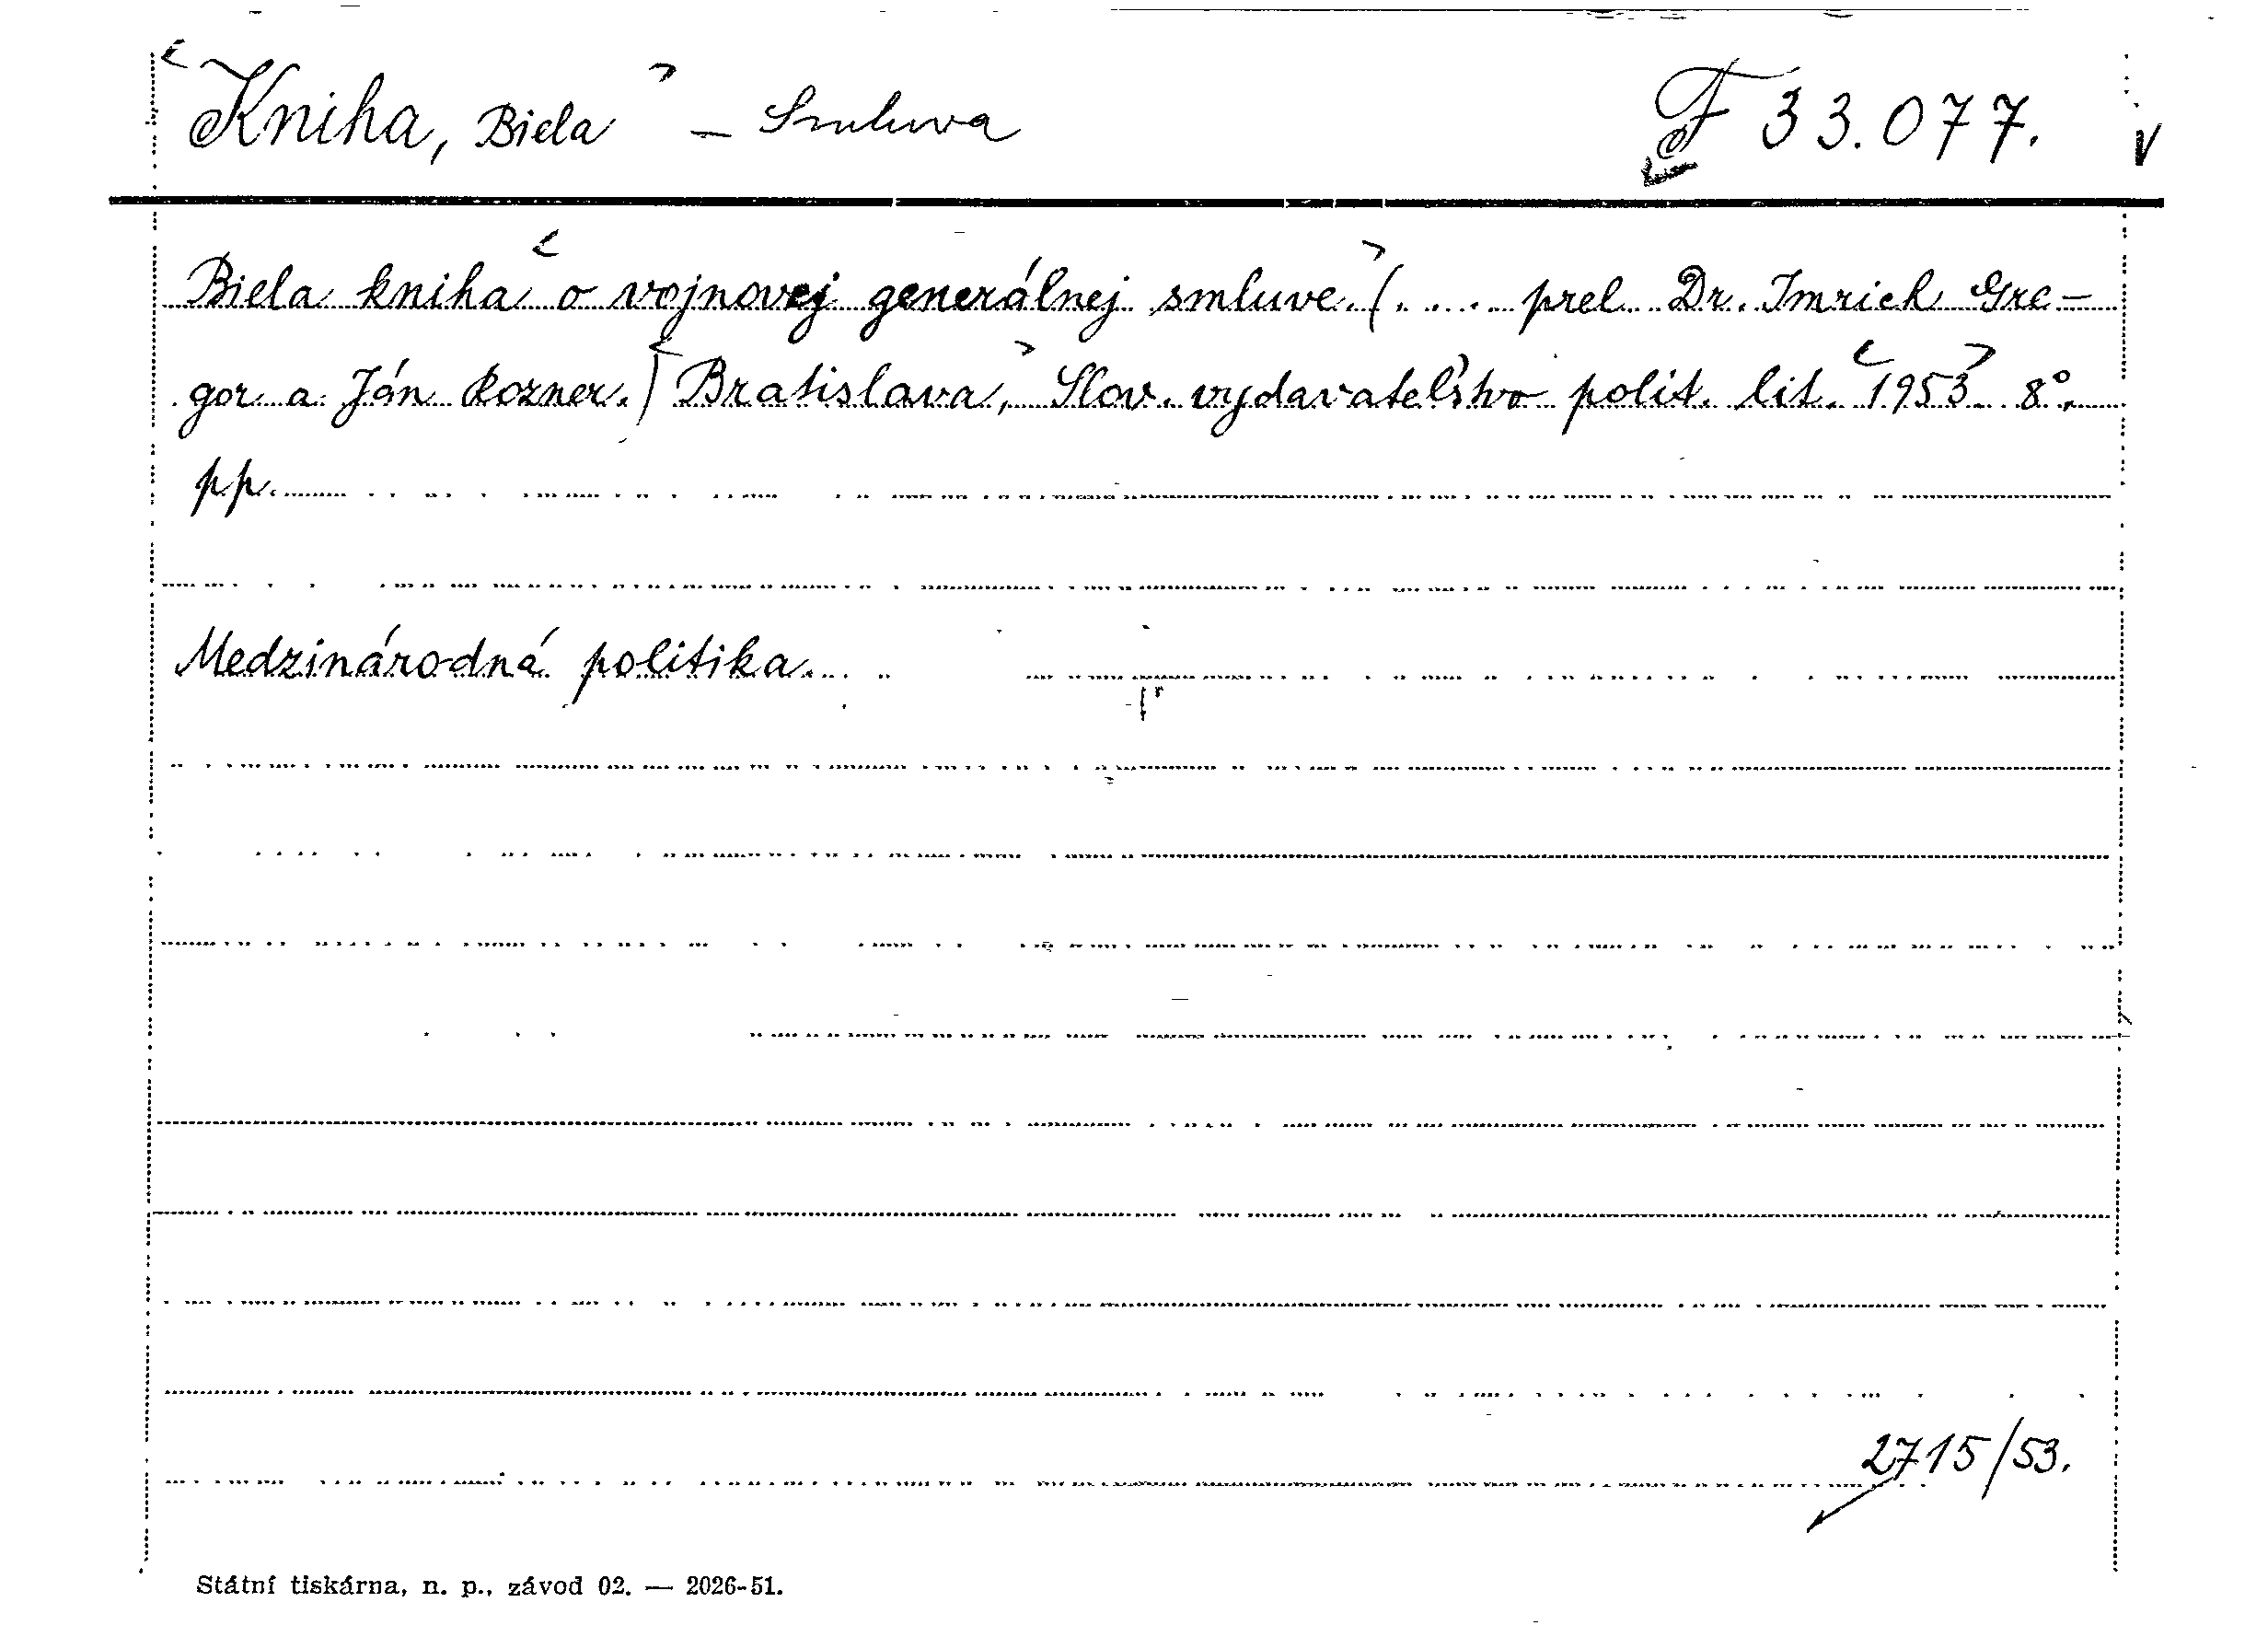 Kniha, Biela – Smluva F 33.077.
Biela kniha o vojnovej generálnej smluve. (.... prel. Dr. Imrich Gre-
gor a Ján Rozner.) Bratislava, Slov. vydavateľstvo polit. lit. 1953. 8°.
pp.
Medzinárodná politika.
2715/53.
Státní tiskárna, n. p., závod 02. — 2026-51.